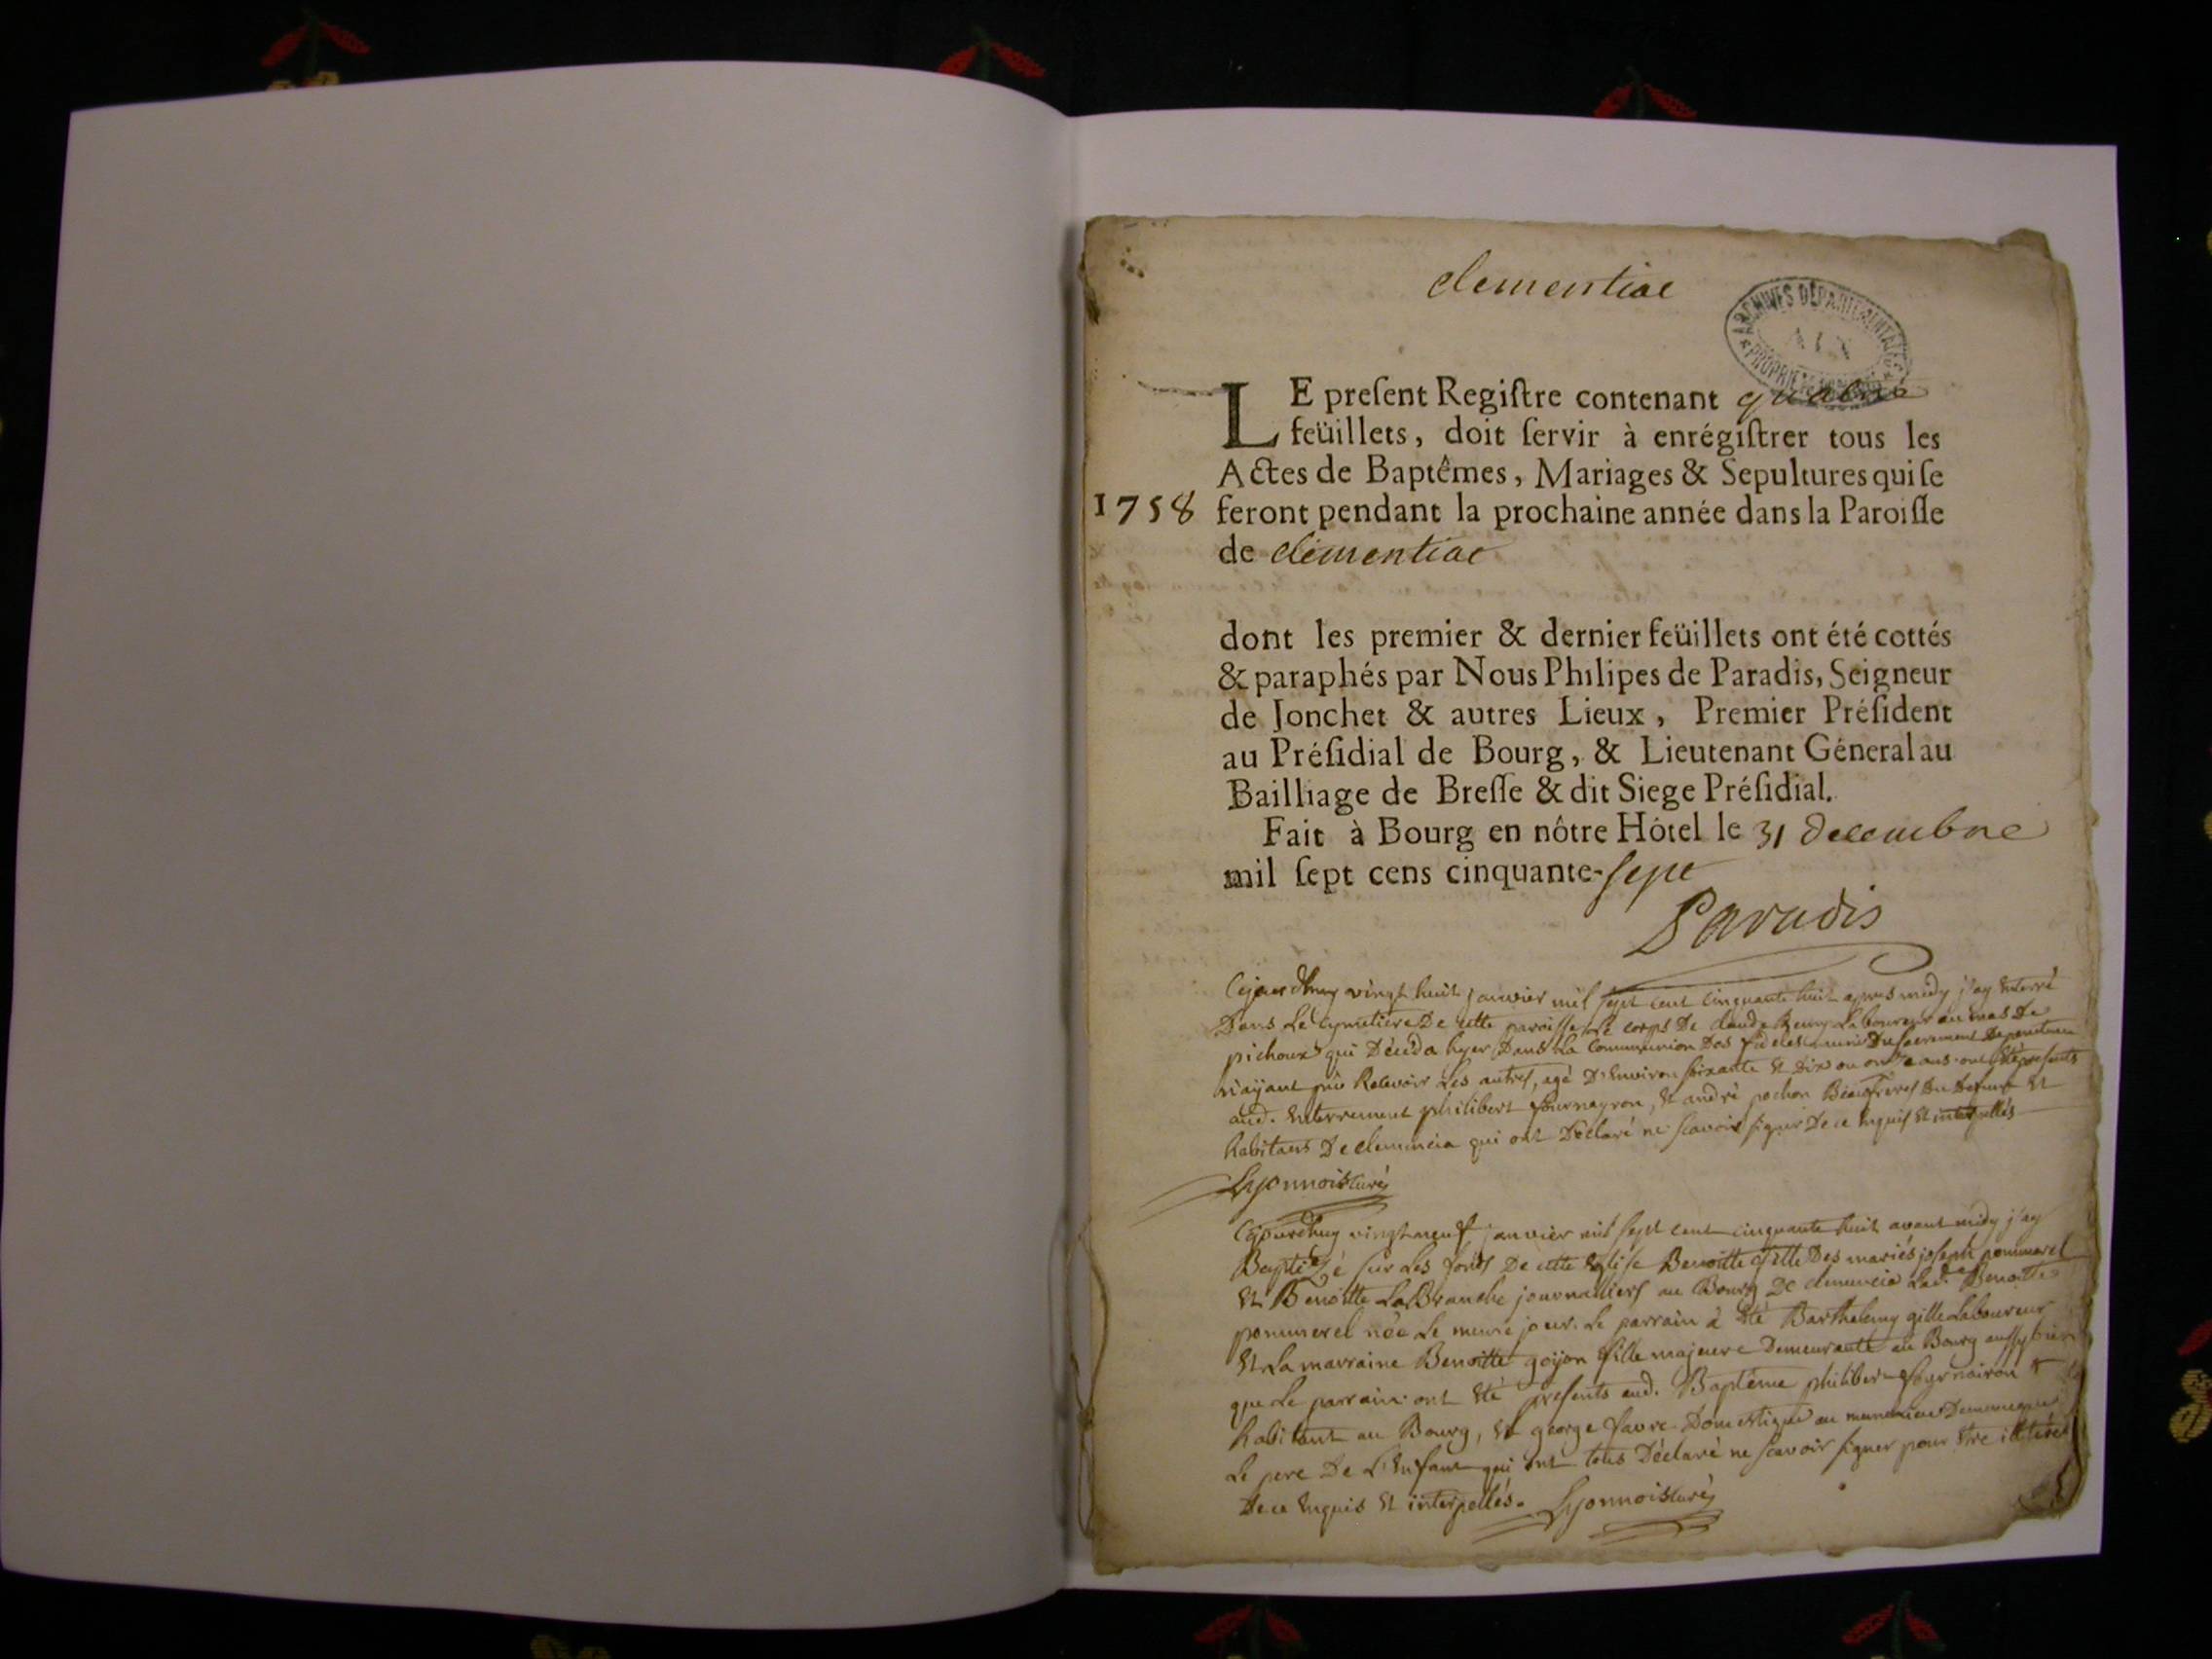 clementiae
ARCHIVES DÉPARTEMENTALES
AIN
LE preſent Regiſtre contenant quatre
feüillets, doit ſervir à enrégiſtrer tous les
Actes de Baptêmes, Mariages & Sepultures qui ſe
1758 feront pendant la prochaine année dans la Paroiſſe
de clementiae
dont les premier & dernier feüillets ont été cottés
& paraphés par Nous Philipes de Paradis, Seigneur
de Jonchet & autres Lieux, Premier Préſident
au Préſidial de Bourg, & Lieutenant Géneral au
Bailliage de Breſſe & dit Siege Préſidial.
Fait à Bourg en nôtre Hôtel le 31 decembre
mil ſept cens cinquante-ſept
Paradis
Cejourdhuy vingt huit janvier mil sept cent cinquante huit apres midy j'ay enterré
Dans Le Cymetiere De cette paroisse Le corps De claude Remy Laboureur au mas De
pichoux qui Déceda hyer Dans La Communion Des fideles muni Du sacrement De penitence
n'ayant pû Recevoir Les autres, agé D'Environ soixante et Dix ou onze ans. ont été presents
aud. Enterrement philibert fournayron, et andré pochon Beaufreres Du Defunt et
habitans De clemencia qui ont Déclaré ne scavoir signer De ce Enquis et interpellés
Lyonnois curé
Cejourdhuy vingt neuf janvier mil sept cent cinquante huit avant midy j'ay
Baptizé sur Les fonds De cette Eglise Benoitte fille Des mariés joseph pommerel
et Benoitte LaBranche journalliers au Bourg De clemencia Lad. Benoitte
pommerel née Le meme jour. Le parrain à été Barthelemy gille Laboureur
et La marraine Benoitte goyon fille majeure Demeurante au Bourg aussy bien
que Le parrain. ont été presents aud. Baptême philibert fournairon
habitant au Bourg, et george favre Domestique au
Le pere De L'Enfant qui ont tous Déclaré ne scavoir signer pour être illitérés
De ce Enquis et interpellés. Lyonnois curé